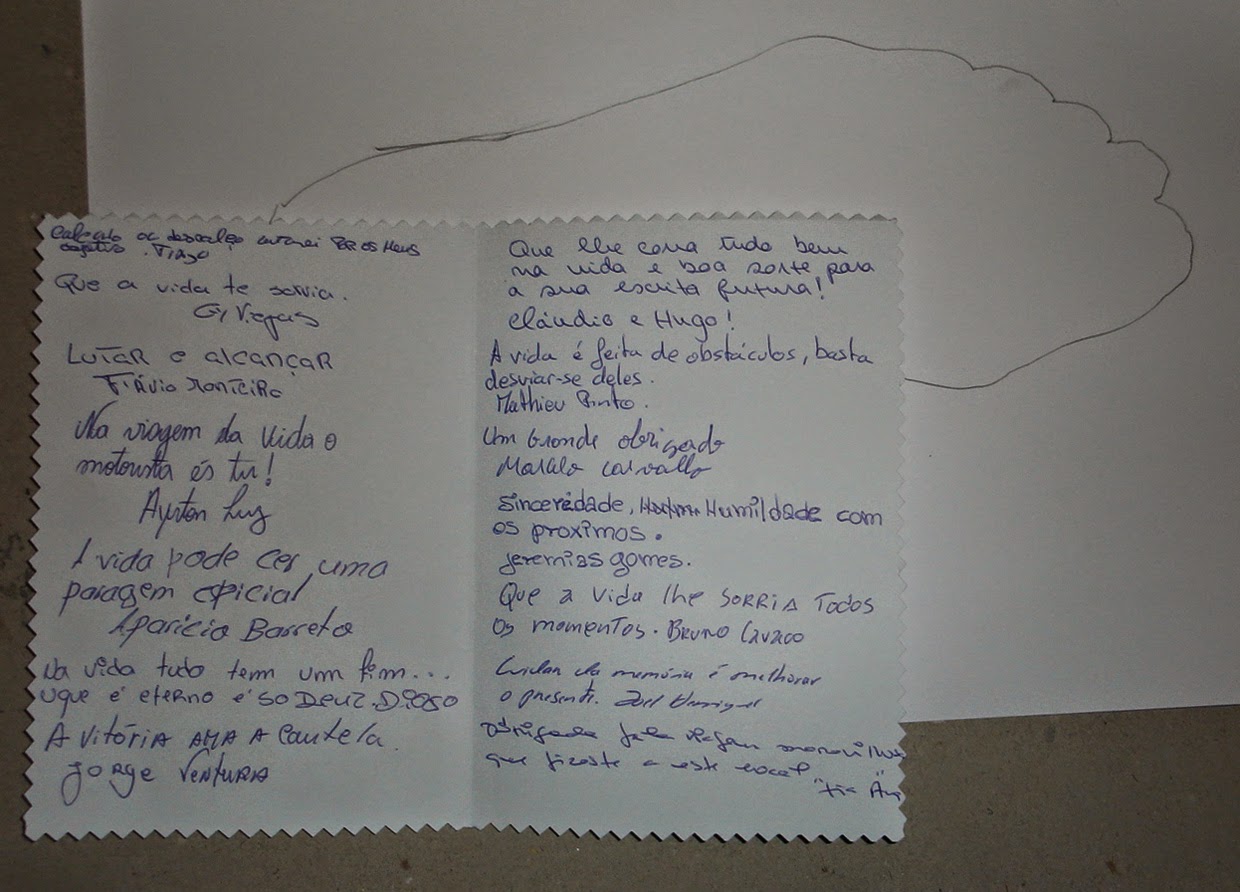 Calçado ou descalço lutarei POR OS MEUS
objetivo. TIAGO
Que a vida te sorria.
Gi Viegas
LUTAR e alcançar
Flávio Monteiro
Na viagem da vida o
motorista és tu!
Ayrton Luz
A vida pode cer uma
paragem espicial
Aparício Barreto
Na vida tudo tem um fim...
uque é eterno é só DEUZ. DIOGO
A VitóRIA AMA A Cautela.
Jorge VENTURA
Que lhe corra tudo bem
na vida e boa sorte para
a sua escrita futura!
Cláudio e Hugo!
A vida é feita de obstáculos, basta
desviar-se deles.
Mathieu Pinto.
Um Grande obrigado
Marcelo Carvallo
Sinceredade, Humildade com
os proximos.
Jeremias gomes.
Que a vida lhe SORRIA TODOS
Os momentos. BRUNO CAVACO
Cuidar da memória é melhorar
o presente. Joel Henriques
Obrigada pela viagem maravilhosa
que fizeste a este local
"tia